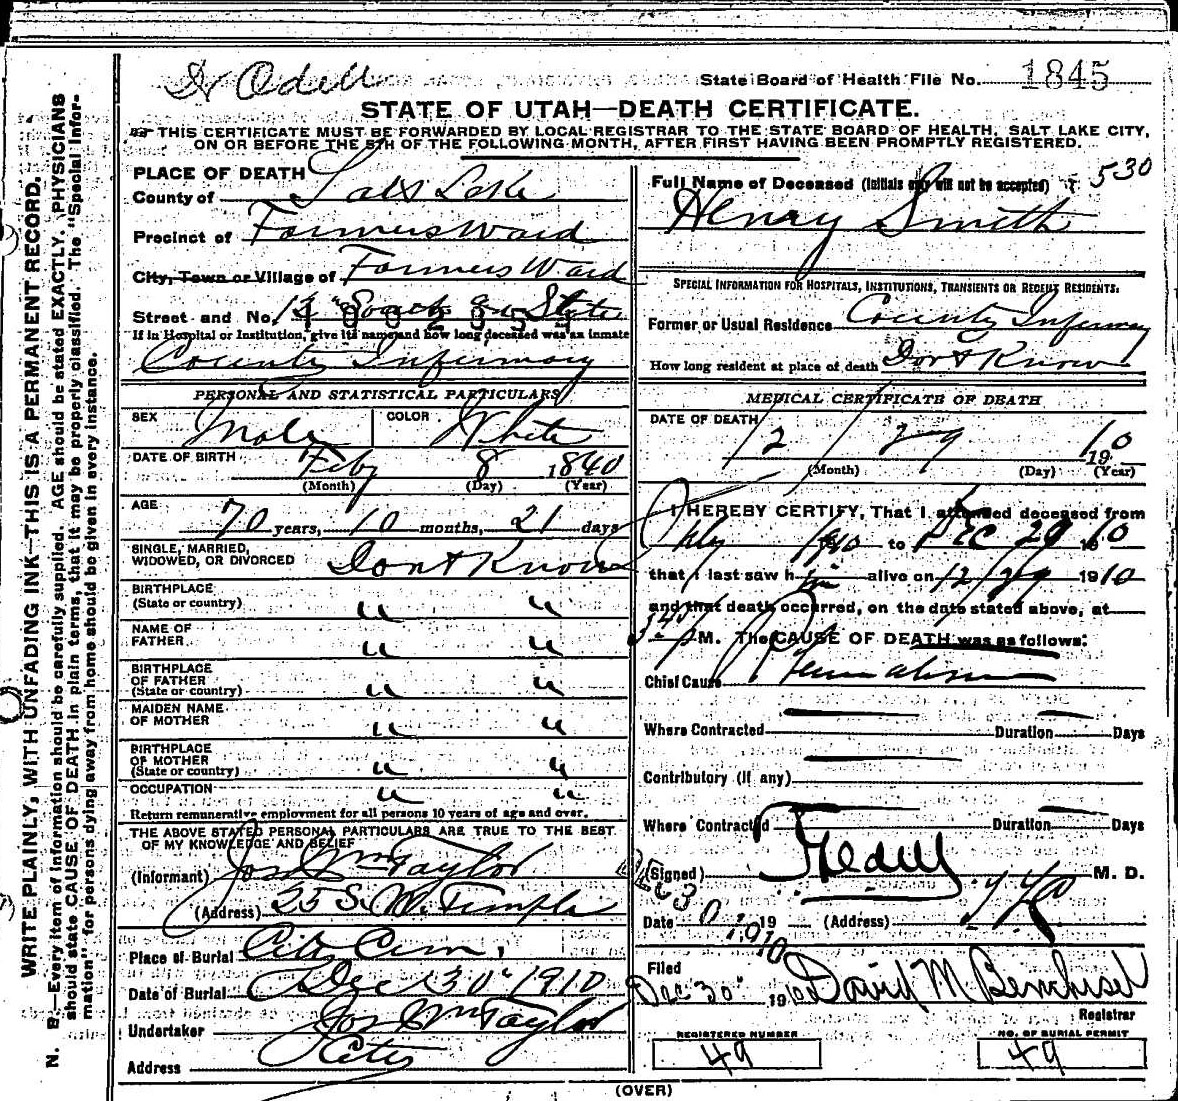 Dr Odell
State Board of Health File No. 1845
STATE OF UTAH—DEATH CERTIFICATE.
THIS CERTIFICATE MUST BE FORWARDED BY LOCAL REGISTRAR TO THE STATE BOARD OF HEALTH, SALT LAKE CITY,
ON OR BEFORE THE 5TH OF THE FOLLOWING MONTH, AFTER FIRST HAVING BEEN PROMPTLY REGISTERED.
WRITE PLAINLY, WITH UNFADING INK—THIS IS A PERMANENT RECORD.
N. B.—Every item of information should be carefully supplied. AGE should be stated EXACTLY. PHYSICIANS
should state CAUSE OF DEATH in plain terms, that it may be properly classified. The "Special Infor-
mation" for persons dying away from home should be given in every instance.
PLACE OF DEATH
County of Salt Lake
Precinct of Farmers Ward
City, Town or Village of Farmers Ward
Street and No. 13 South State
If in Hospital or Institution, give its name and how long deceased was an inmate
County Infirmary
PERSONAL AND STATISTICAL PARTICULARS
SEX Male COLOR White
DATE OF BIRTH Feby 8 1840
(Month) (Day) (Year)
AGE
70 years, 10 months, 21 days
SINGLE, MARRIED,
WIDOWED, OR DIVORCED Dont Know
BIRTHPLACE
(State or country) " "
NAME OF
FATHER " "
BIRTHPLACE
OF FATHER
(State or country) " "
MAIDEN NAME
OF MOTHER " "
BIRTHPLACE
OF MOTHER
(State or country) " "
OCCUPATION " "
Return remunerative employment for all persons 10 years of age and over.
THE ABOVE STATED PERSONAL PARTICULARS ARE TRUE TO THE BEST
OF MY KNOWLEDGE AND BELIEF
(Informant) Jos Wm Taylor
(Address) 25 S. W. Temple
Place of Burial City Cem.
Date of Burial Dec 30" 1910
Undertaker Jos Wm Taylor
Address City
Full Name of Deceased (Initials only will not be accepted) 530
Henry Smith
SPECIAL INFORMATION FOR HOSPITALS, INSTITUTIONS, TRANSIENTS OR RECENT RESIDENTS:
Former or Usual Residence County Infirmary
How long resident at place of death Dont Know
MEDICAL CERTIFICATE OF DEATH
DATE OF DEATH
12 / 29 1910
(Month) (Day) (Year)
I HEREBY CERTIFY, That I attended deceased from
1910 to Dec 29 10
that I last saw him alive on 12/29 1910
and that death occurred, on the date stated above, at
3 45 P M. The CAUSE OF DEATH was as follows:
Chief Cause Rheumatism
Where Contracted Duration Days
Contributory (if any)
Where Contracted Duration Days
(Signed) M. D.
Date Dec 30 1910 19 (Address)
Filed
Dec 30" 1910 David M Benchisel
Registrar
REGISTERED NUMBER
49
NO. OF BURIAL PERMIT
49
(OVER)